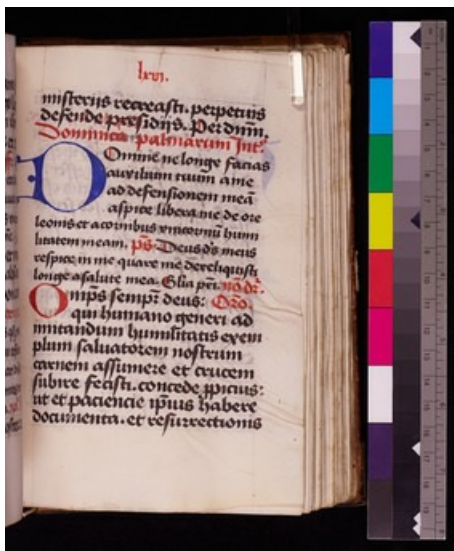 lxvi.
misterijs recreasti. perpetuis
defende presidijs. Per dnm̄.
Dominica palmarum Int̄.
Domine ne longe facias
auxilium tuum a me
ad defensionem meā
aspice libera me de ore
leonis et a cornibus unicornuū humi
litatem meam. p̄s. Deus d̄s meus
respice in me quare me dereliquisti
longe a salute mea. Glia pr̄i. nō dr̄.
Omp̄s semp̄r deus: Oro.
qui humano generi ad
imitandum humilitatis exem
plum saluatorem nostrum
carnem assumere et crucem
subire fecisti. concede ꝓpicius:
ut et paciencie ip̄ius habere
documenta. et resurrectionis